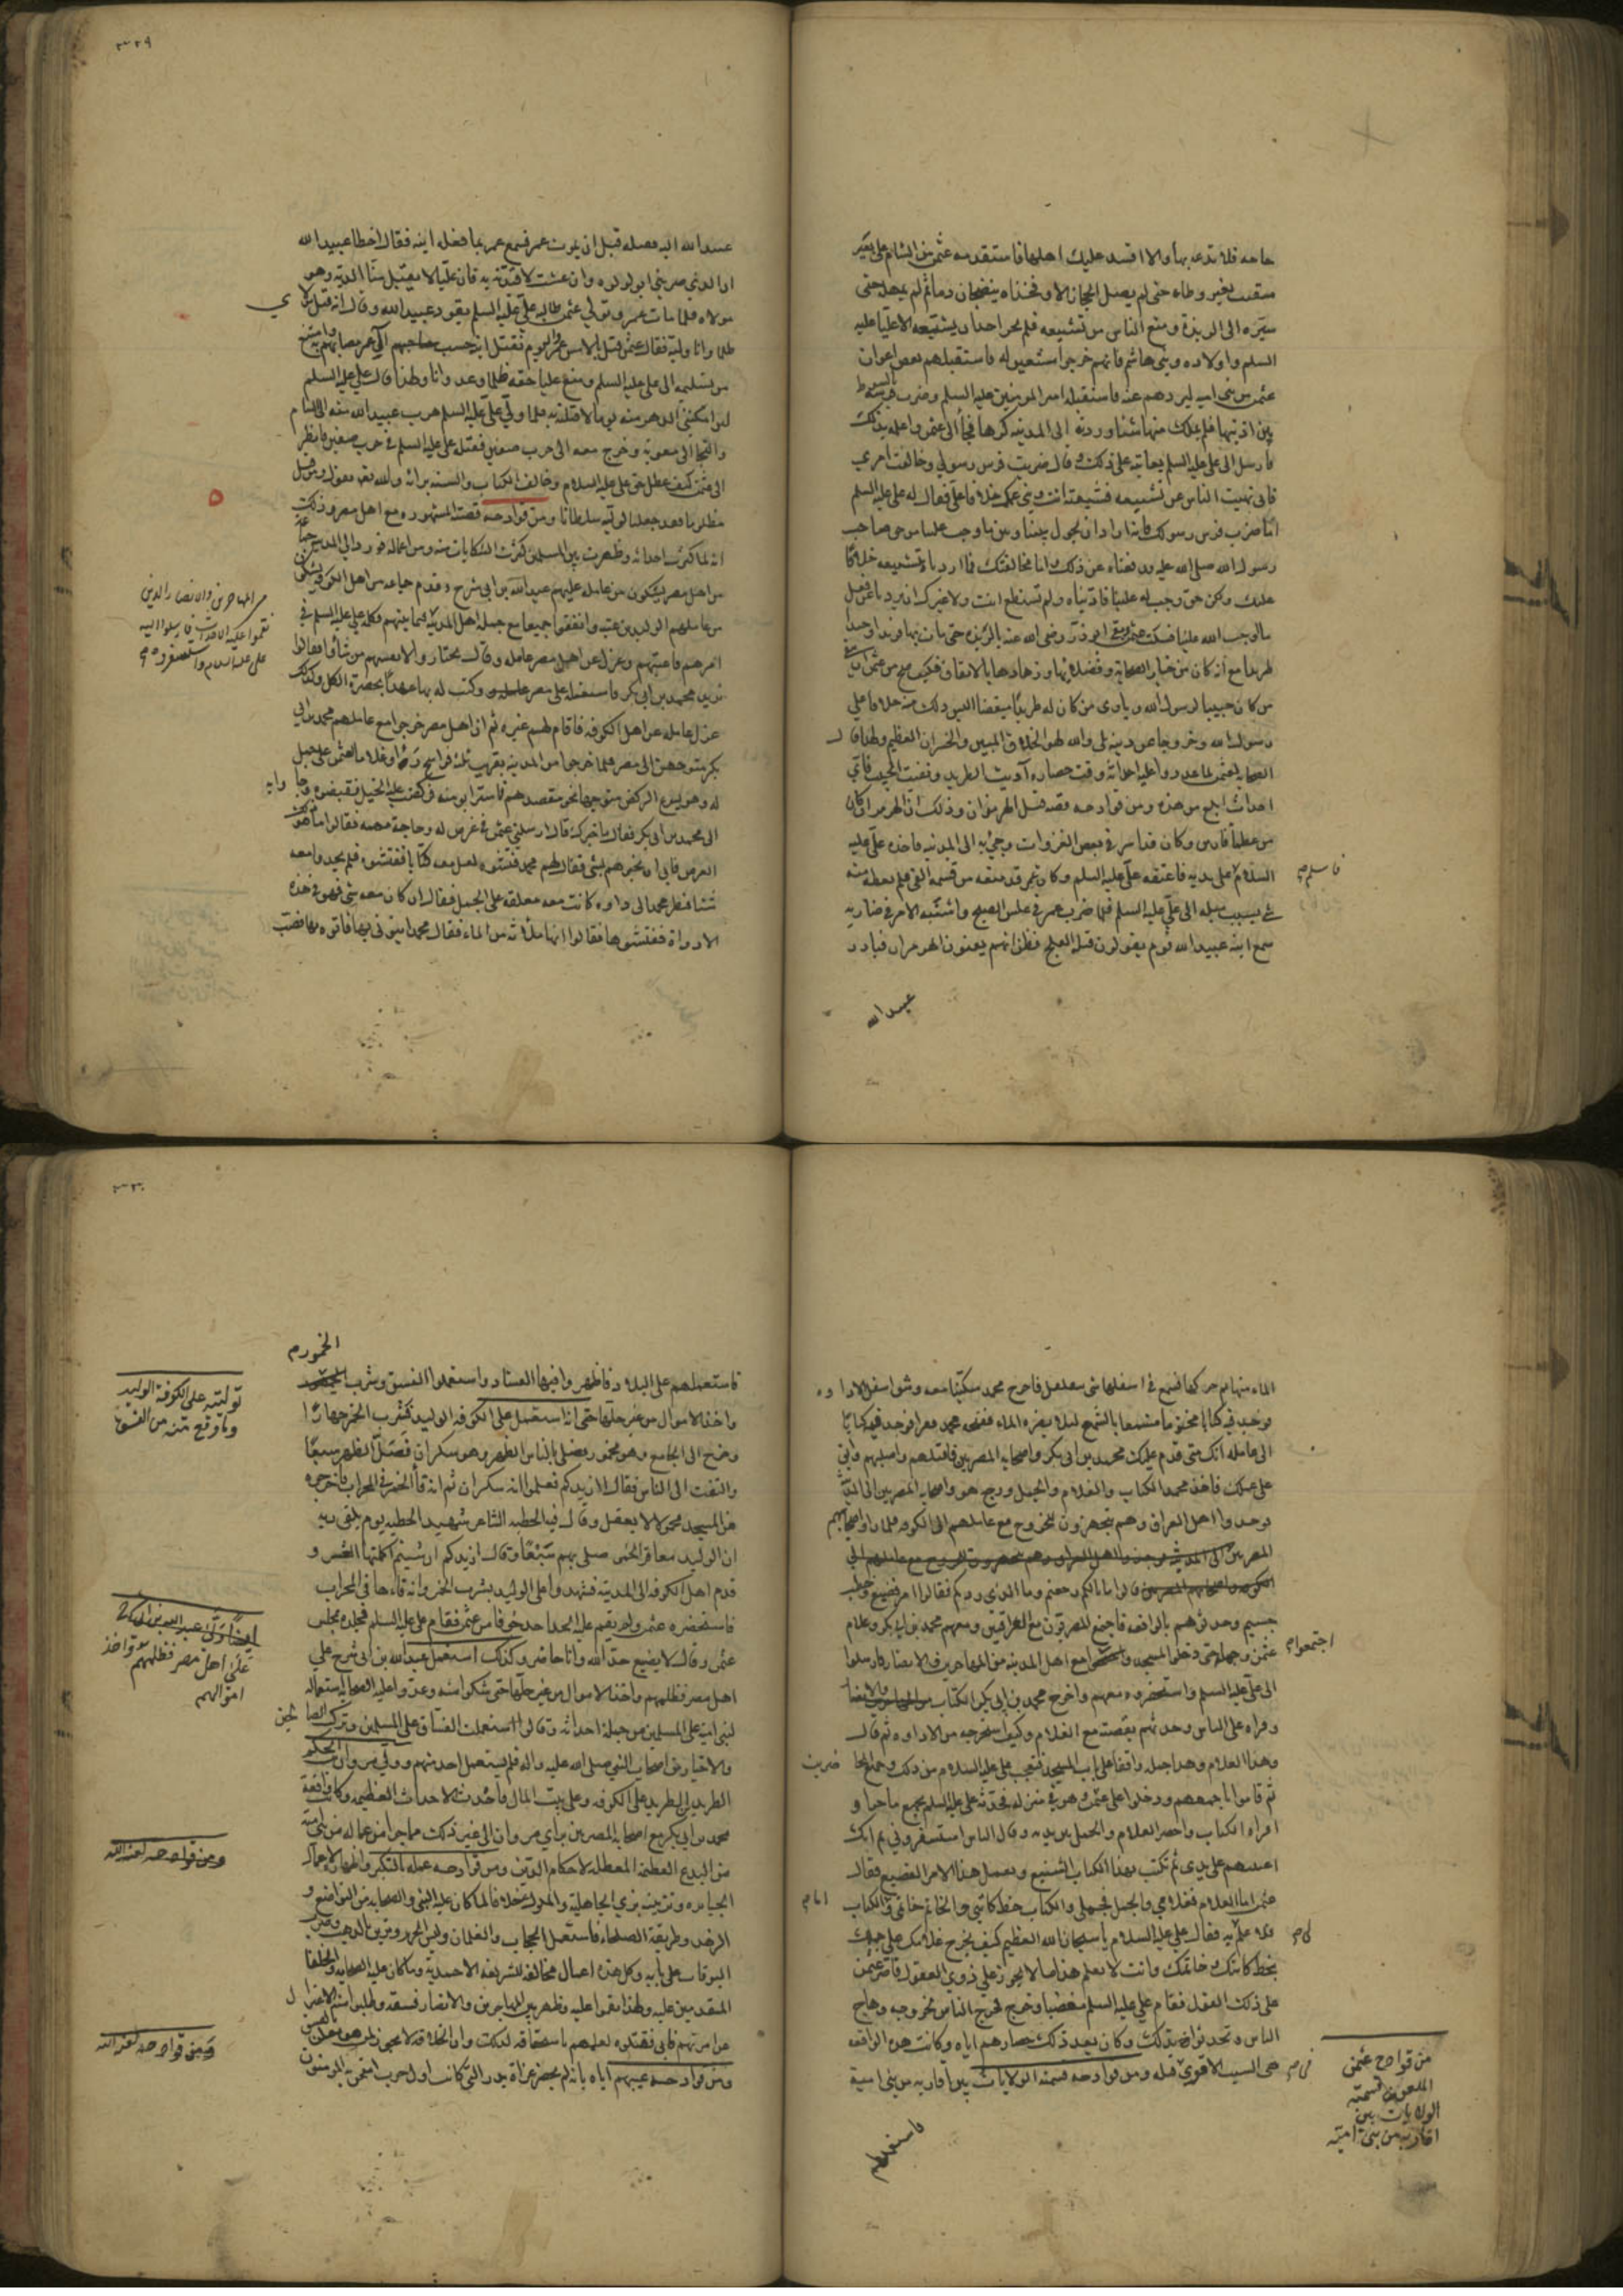 حاجه فلا تدعه بها والا افسد عليك اهلها فاستقدمه عثمن من الشام على بعير
بغير وطاء حتى لم يصل الحجاز الا وفخذاه ثم لم يمهله حتى
سيّره الى الربذة ومنع الناس من تشييعه فلم احد ان يشيّعه الا عليّا عليه
السلم واولاده وبنى هاشم فانهم خرجوا مشيعين له فاستقبلهم بعض اعوان
عثمن من بنى اميه ليردهم عنه فاستقبله امير المومنين عليه السلم وضرب فرسه
بين اذنيها فلم يملك منها ورده الى المدينه كرها فجأ الى عثمن واعلمه بذلك
فارسل الى على عليه السلم يعاتبه على ذلك وقال ضربت فرس رسولى وخالفت امرى
فانى نهيت الناس عن تشييعه فشيعته انت فقال له على عليه السلم
امّا ضرب فرس رسولك فانه اراد ان يحول بيننا وبين ما وجب علينا من حق صاحب
رسول الله صلى الله عليه عن ذلك واما مخالفتك فما اردنا بتشييعه خلافًا
عليك ولكن حق وجب له علينا فادّيناه ولم تستطع انت ولا غيرك ان نفعل
ما اوجب الله علينا فسكت عثمن وبقى ابو ذرّ رضى الله عنه بالربذه حتى مات بها فريدا وحيدا
طريدا مع انه كان من خيار الصحابة وفضلائها وزهادها بالاتفاق فكيف صح من عثمن ان
من كان حبيبا لرسول الله وياوى من كان له طريدًا
رسول الله وخروجا عن دينه بلى والله لهو الخلاف المبين والخسران العظيم ولهذا قال
الصحابة لعثمن لما عددوا عليه احداثه وقت حصاره آويت الطريد ونفيت الحبيب فاى
احداث ابلغ من هذه ومن قوادحه قصه قتل الهرمزان وذلك ان الهرمزان كان
من عظماء فارس وكان قد اسر فى بعض الغزوات وجئ به الى المدينه فاخذه على عليه
السلام فاعتقه علىّ عليه السلم وكان عمر قد منعه من قسمة الفئ فلم يعطه منه
شئ بسبب ميله الى علىّ عليه السلم فلما ضرب عمر فى غلس الصبح واشتبه الامر فى ضاربه
سمع ابنه عبيد الله قوم يقولون قتله العلج فظن انهم يعنون الهرمزان فبادر
فاسلم
عبيد الله
٣٢٩
عبيد الله اليه فقتله قبل ان يموت عمر فسمع عمر بما فعله ابنه فقال اخطأ عبيد الله
ان الذى ضربنى ابو لولوه وان عشت لاقيدنه به فان عليّا لا يقبل منّا الديّه وهو
مولاه فلما مات عمر وتولى عثمن طالبه علىّ عليه السلم بقود عبيد الله وقال انه قتل مولاى
ظلما وانا وليّه فقال عثمن قتل بالامس عمر واليوم نقتل ابنه حسب آل عمر مصابهم به وامتنع
من تسليمه الى على عليه السلم ومنع عليّا حقه ظلما وعدوانا ولهذا قال على عليه السلم
لئن امكننى الدهر منه يوما لاقتلنّه به فلما ولى علىّ عليه السلم هرب عبيد الله منه الى الشام
والتجا الى معوية وخرج معه الى حرب صفين فقتله على عليه السلم فى حرب صفين فانظر
الى عثمن كيف عطل حق على عليه السلام وخالف الكتاب والسنه برأيه والله تعالى يقول ومن قتل
مظلوما فقد جعلنا لوليه سلطانا ومن قوادحه قصته المشهوره مع اهل مصر وذلك
انه لما كثرت احداثه وظهرت بين المسلمين كثرت الشكايات منه ومن اعماله فورد الى المدينه جماعة
من اهل مصر يشكون من عامله عليهم عبد الله بن ابى سرح وقدم جماعه من اهل الكوفه يشكون
من عاملهم الوليد بن عتبه واتفقوا جميعا مع جملة اهل المدينة فكلمه على عليه السلم فى
امرهم فاعتبهم وعزل عن اهل مصر عامله وقال يختاروا لانفسهم من شاؤا فقالوا
نريد محمد بن ابى بكر فاستعمله على مصر وكتب له بها عهدًا بحضرة الكل وكذلك
عزل عامله عن اهل الكوفه فاقام لهم غيره ثم ان اهل مصر خرجوا مع عاملهم محمد بن ابى
بكر متوجهين الى مصر فلما خرجوا من المدينه بقريب ثلثة فراسخ رأوا غلاما لعثمن على جمل
له وهو يسرع الركض متوجها نحو مقصدهم فاسترابو منه فركضت عليه الخيل فقبضوه وجاوا به
الى محمد بن ابى بكر فقال ما خبرك قال ارسلنى عثمن فى غرض له وحاجة مهمه فقالوا ما هو
الغرض فابى ان يخبرهم بشئ فقال لهم محمد فتشوه لعل معه كتابا ففتشوه فلم يجدوا معه
شئا فنظر محمد الى داوه كانت معه معلقة على الجمل فقال ان كان معه شئ فهو فى هذه
الادواة ففتشوها فقالوا انها ملآنه من الماء فقال محمد ايتونى بها فاتوه بها فصب
من المهاجرين والانصار الذين
نقموا عليه الاحداث فارسلوا اليه
على عليه السلام واستحضروه
الماء منها ثم حركها فسمع فى اسفلها شئ يتقلقل فاخرج محمد سكّينا معه وشق اسفل الاداوه
فوجد فيه كتابا مختوما مشمعا بالشمع لئلا يضره الماء ففضه محمد وقراه فوجد فيه كتابا
الى عامله انك متى قدم عليك محمد بن ابى بكر واصحابه المصريين فاقتلهم واصلبهم وابق
على عملك فاخذ محمد الكتاب والغلام والجمل ورجع هو واصحابه المصريين الى المدينة
فوجدوا اهل العراق وهم يتجهزون للخروج مع عاملهم الى الكوفه فلما راوا اصحابهم
المصريين قالوا ما بالكم رجعتم وما الذى ردكم فقالوا امر فضيع وخطب
جسيم وحدثوهم بالواقعه فاجتمع المصريون مع العراقيين ومعهم محمد بن ابى بكر وغلام
عثمن وجمله حتى دخلوا المسجد مع اهل المدينه من المهاجرين والانصار فارسلوا
الى على عليه السلم واستحضروه معهم واخرج محمد بن ابى بكر الكتاب
وقراه على الناس وحدثهم بقصته مع الغلام وكيف استخرجه من الاداوه ثم قال
وهذا الغلام وهذا جمله واقفا على باب المسجد فتعجب على عليه السلام من ذلك وجميع الحاضرين
ثم قاموا باجمعهم ودخلوا على عثمن وهو فى منزله فحدثه على عليه السلم بجميع ما جرا و
اقراه الكتاب واحضر الغلام والجمل بين يديه وقال الناس استسفرونى ثم انك
اعتبهم على يدى ثم تكتب بهذا الكتاب الشنيع وتعمل هذا الامر الفضيع فقال
عثمن اما الغلام فغلامى والجمل فجملى والكتاب خط كاتبى والخاتم خاتمى واما الكتاب
فلا علم لى به فقال على عليه السلام يا سبحان الله العظيم كيف يخرج غلامك على جملك
بخط كاتبك وخاتمك وانت لا تعلم هذا ما لا يجوز على ذوى العقول فاصر عثمن
على ذلك القول فقام على عليه السلم مغضبا وخرج فخرج الناس بخروجه وهاج
الناس وتحدثوا بذلك وكان بعد ذلك حصارهم اياه وكانت هذه الواقعه
هى السبب الاقوى فى قتله ومن قوادحه قسمته الولايات بين اقاربه من بنى امية
اجتمعوا
من قوادح عثمن
الملعون قسمته
الولايات بين
اقاربه من بنى امية
فاستعملهم
٣٣٠
الخمور
فاستعملهم على البلاد فاظهروا فيها الفساد واستعملوا الفسق وشرب
واخذ الاموال من غير حلها حتى انه استعمل على الكوفه الوليد فشرب الخمر جهارًا
وخرج الى الجامع وهو مخمور يصلى بالناس الظهر وهو سكران فصلّى الظهر سبعًا
والتفت الى الناس فقال الا ازيدكم فعلموا انه سكران ثم انه قأ الخمر فى المحراب فاخرجوه
من المسجد محمولا لا يعقل وقال فيه الحطيه الشاعر شهد الحطيه يوم يلقى ربه
ان الوليد معاقر الخمر صلى بهم سبعًا وقال ازيدكم ان شئتم اكملتها العشر و
قدم اهل الكوفه الى المدينه فشهدوا على الوليد بشرب الخمر وانه قاءها فى المحراب
فاستحضره عثمن ولم يقيم عليه الحدا فقام على عليه السلم فجلده بمجلس
عثمن وقال لا يضيع حدّ الله وانا حاضر وكذلك استعمل عبد الله بن ابى سرح على
اهل مصر فظلمهم واخذ الاموال من غير حلها حتى شكوا منه وعدّوا عليه الصحابه استعماله
لبنى اميه على المسلمين من جملة احداثه وقالوا استعملت الفسّاق على المسلمين وتركت الصالحين
والاخيار من اصحاب النبى صلى الله عليه واله فلم يستعمل احد منهم وولى مروان بن الحكم
الطريد بن الطريد على الكوفه وعلى بيت المال فاحدث الاحداث العظيمه وكانت واقعة
محمد بن ابى بكر مع اصحابه المصريين براى مروان الى غير ذلك مما جرا من عماله من بنى اميه
من البدع العظيمة المعطله لاحكام الدين ومن قوادحه عمله بالتكبر واظهاره لاعمال
الجبابره وتزيّنه بزى الجاهلية والملوك خلافا لما كان عليه النبى والصحابه من التواضع و
الزهد وطريقة الصلحاء فاستعمل الحجاب والغلمان ولبس الحرير وتزين بالذهب وضرب
البوقات على بابه وكل هذه اعمال مخالفه للشريعه الاحمديه وما كان عليه الصحابه والخلفا
المتقدمين عليه ولهذا نقموا عليه وظهر بين المهاجرين والانصار فسقه وطلبوا منه الاعتزال
عن امرتهم فابى فقتلوه لعلمهم باستحقاقه لذلك وان الخلافه لا يجوز لمن هو معلن بالفسق
ومن قوادحه عيبهم اياه بانه لم يحضر غزاة بدر التى كانت اول حرب امتحن به المومنون
توليته على الكوفة الوليد
وما وقع منه من الفسق
ايضًا ولّى عبد الله بن ابى
على اهل مصر فظلمهم واخذ
اموالهم
ومن قوادحه لعنه الله
ومن قوادحه لعنه الله